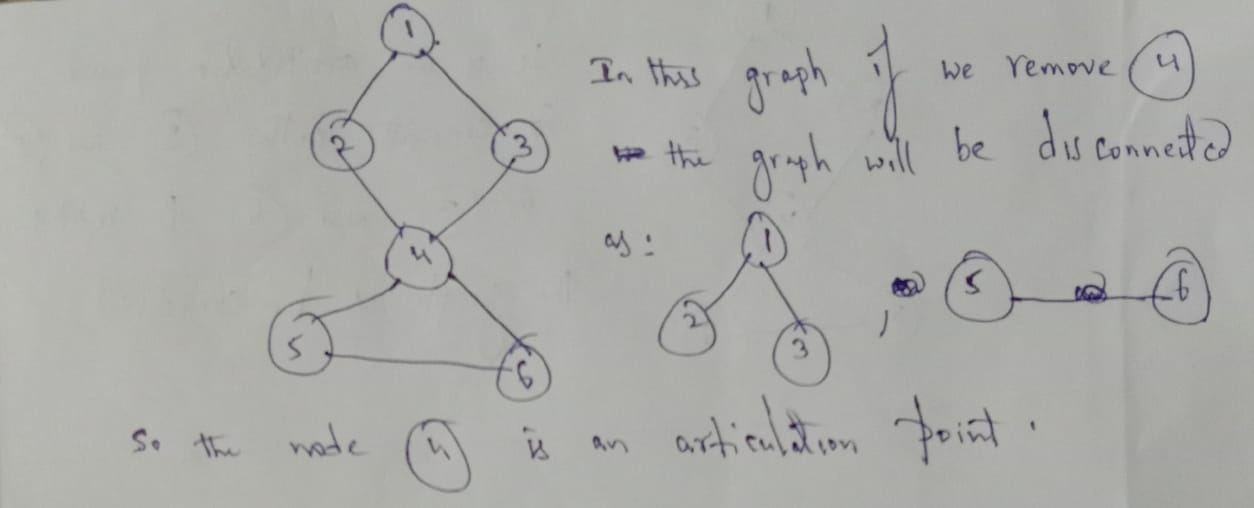 1
In this graph if we remove 4
2 3 the graph will be disconnected
4 as: 1
5 6 2 3 , 5 6
So the node 4 is an articulation point.